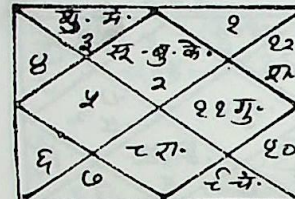 शु. मं.
३
१
१२
श.
४
सू. बु. के.
२
५
११ गु.
६
७
८ रा.
९ चं.
१०